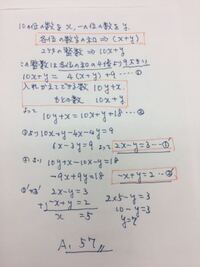 10の位の数をx, 一の位の数をy,
各位の数字の和 ⇒ (x+y)
2ケタの整数 ⇒ 10x+y
この整数は各位の和の4倍より9大きい
10x+y = 4(x+y)+9 …①
入れかえてできる数 10y+x
もとの数 10x+y
よって
10y+x = 10x+y+18 …②
①より 10x+y-4x-4y=9
6x-3y=9 よって 2x-y=3…①'
②より 10y+x-10x-y=18
-9x+9y=18 -x+y=2…②'
①'+②' 2x-y=3
+) -x+y=2
x =5
2×5-y=3
10-y=3
y=7
A, 57